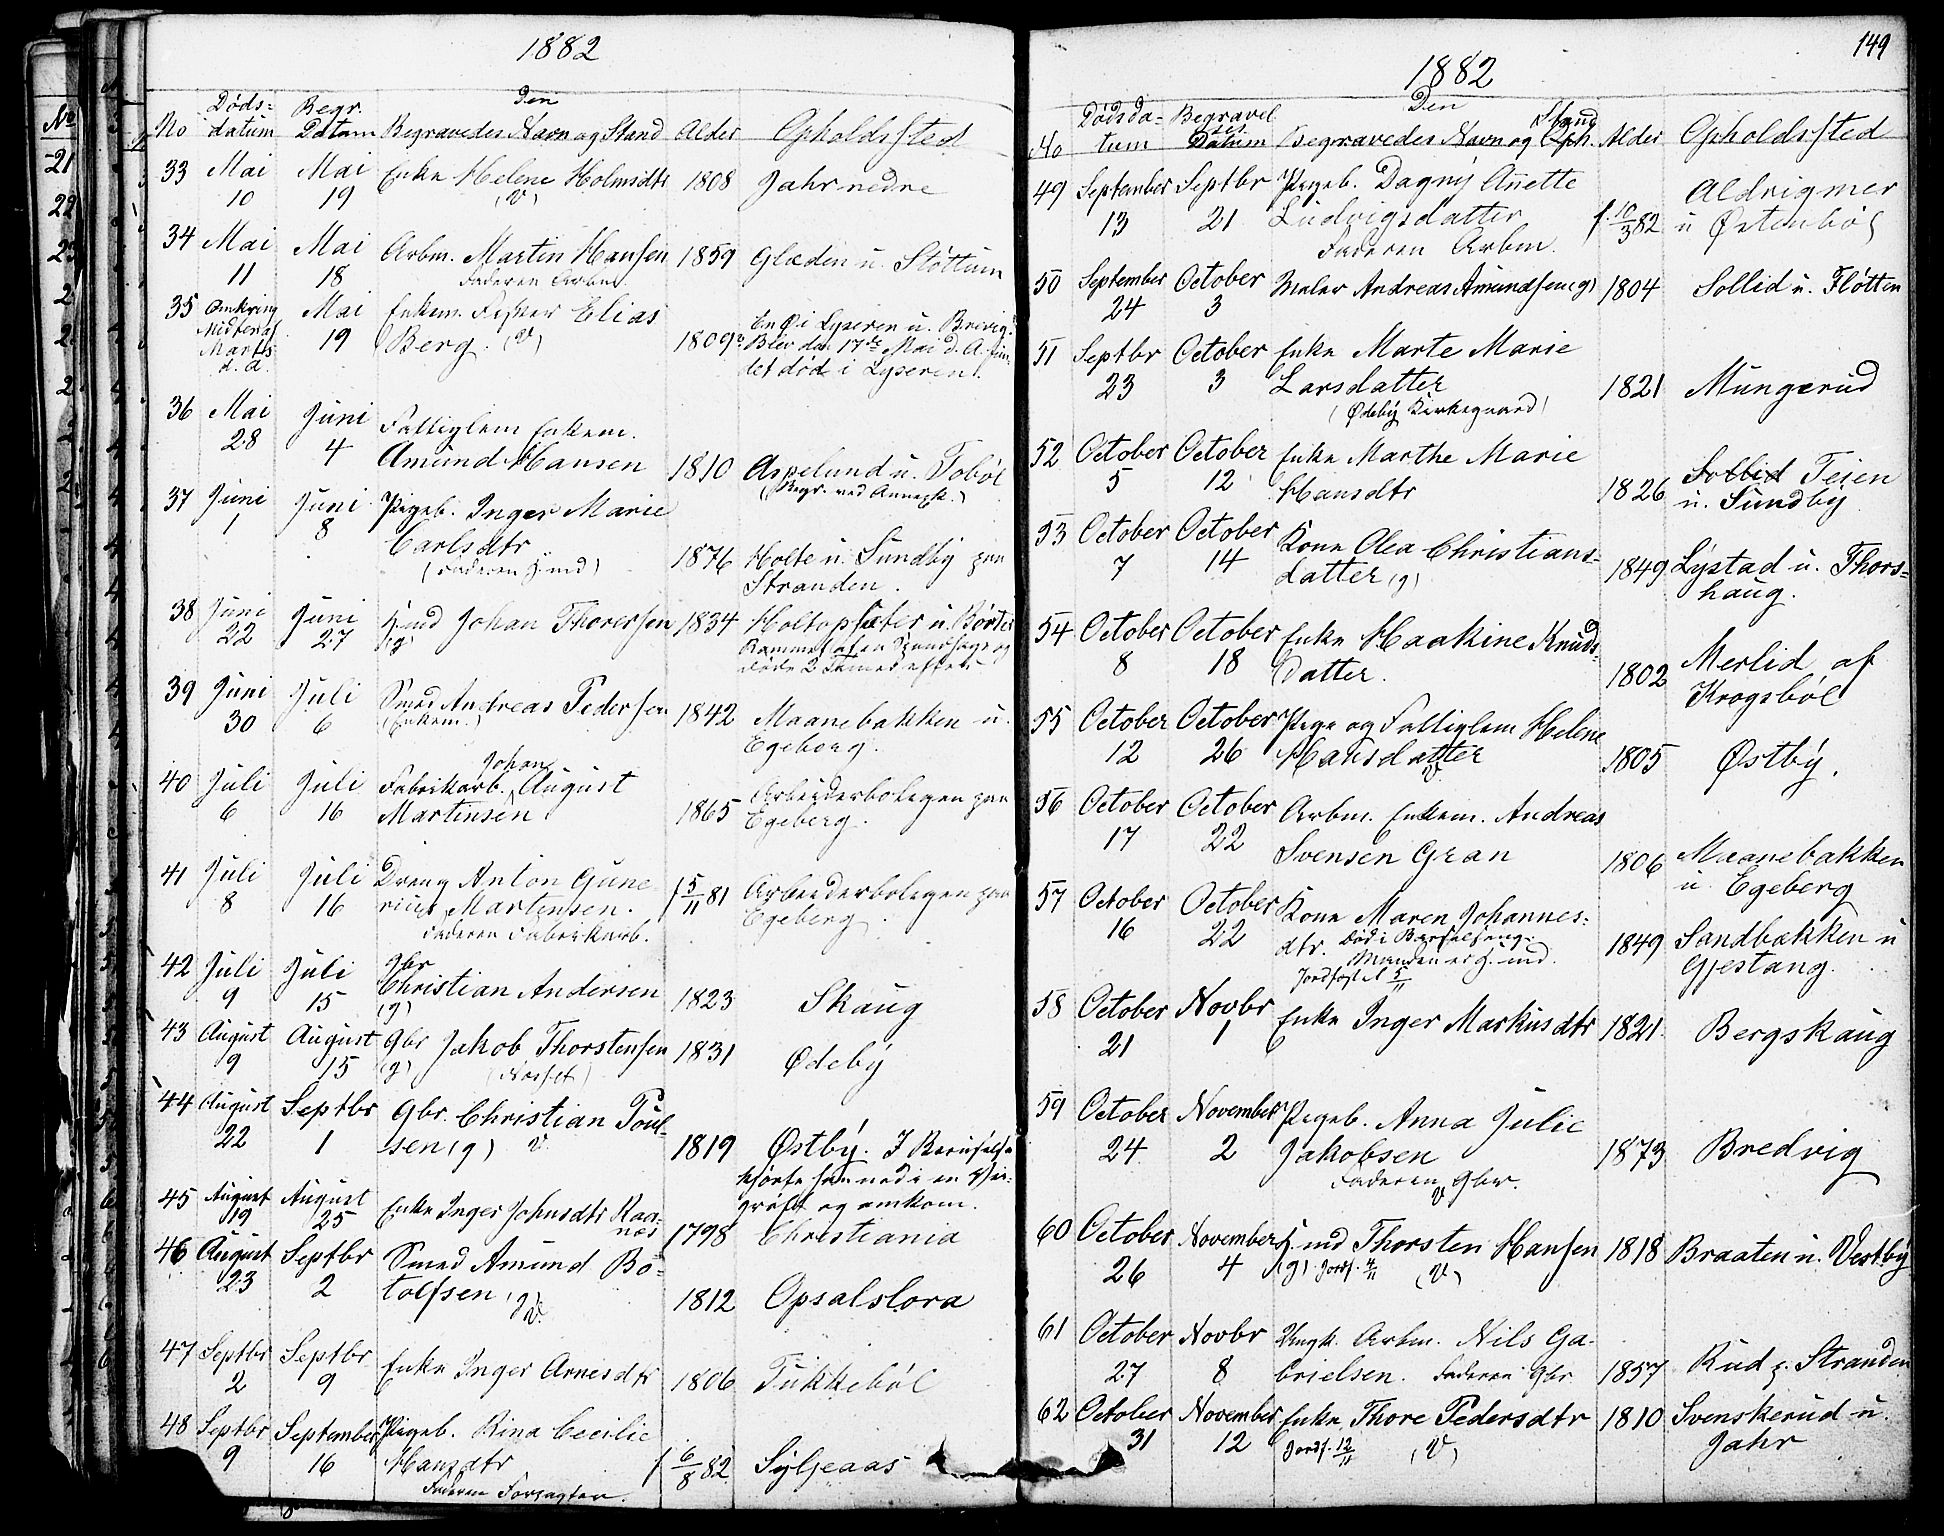 1882
No Døds- datum Begr. Datum Den Begravedes Navn og Stand Alder Opholdssted
33 Mai 10 Mai 19 Enke Helene Holmsdtr (V) 1808 Jahr nedre
34 Mai 11 Mai 18 Arbm. Martin Hansen 1859 Glæden u. Støttum
Faderen Arbm.
35 Omkring Midten af Marts d. A. Mai 19 Enkem. Fisker Elias
Berg. (V) 1809 En Ø i Lyseren u. Brevig.
Blev den 17de Mai d. A. fun-
det død i Lyseren.
36 Mai 28 Juni 4 Fattiglem Enkem.
Amund Hansen 1810 Aspelund u. Tobøl
(Begr. ved Annexk.)
37 Juni 1 Juni 8 Pigeb. Inger Marie
Carlsdtr 1876 Holte u. Sundby paa
(Faderen H.md) Stranden.
38 Juni 22 Juni 27 H.md Johan Thoresen (g) 1834 Holtopsæter u. Børter
Rammet af en
døde 2 Timer efter
39 Juni 30 Juli 6 Smed Andreas Pedersen 1842 Maanebakken u.
(Enkem.) Egeberg.
40 Juli 6 Juli 16 Fabrikarb. Johan August
Martinsen 1865 Arbeiderboligen paa
Egeberg.
41 Juli 8 Juli 16 Dreng Anton Gune-
rius Martinsen. f 5/11 81 Arbeiderboligen paa
Faderen Fabrikarb. Egeberg.
42 Juli 9 Juli 15 Gbr
Christian Andersen (g) 1823 Skaug
43 August 9 August 15 Gbr Jakob Thorstensen (g) 1831 Ødeby
44 August 22 Septbr 1 Gbr. Christian Poul-
sen (g) V. 1819 Østby. I
kjørte han ned i en
grøft og omkom.
45 August 19 August 25 Enke Inger Johnsdtr Raa-
næs 1798 Christiania
46 August 23 Septbr 2 Smed Amund Bo-
tolfsen, g V. 1812 Opsalslora
47 Septbr 2 Septbr 9 Enke Inger Arnesdtr 1806 Tukkebøl
48 Septbr 9 September 16 Pigeb. Rina Cecilie
Hansdtr f 6/8 82 Syljeaas
Faderen Forpagter.
149
1882
No Dødsda- tum Begravel ses Datum Den Begravedes Navn og Stand Oph. Alder Opholdssted
49 September 13 Septbr 21 Pigeb. Dagny Anette
Ludvigsdatter f. 10/3 82 Aldrigmer
Faderen Arbm. u Østenbøl
50 September 24 October 3 Maler Andreas Amundsen (g) 1804 Sollid u. Fløtten
51 Septbr 23 October 3 Enke Marte Marie
Larsdatter 1821 Mungerud
(Ødeby Kirkegaard)
52 October 5 October 12 Enke Marthe Marie
Hansdtr 1826 Sollid Teien
u. Sundby
53 October 7 October 14 Kone Olea Christians-
datter (g) 1849 Lystad u. Thors-
haug.
54 October 8 October 18 Enke Haakine Knuds-
datter. 1802 Merlid af
Krogsbøl
55 October 12 October 26 Pige og Fattiglem Helene
Hansdatter V. 1805 Østby.
56 October 17 October 22 Arbm. Enkem. Andreas
Svensen Gran 1806 Maanebakken
u. Egeberg
57 October 16 October 22 Kone Maren Johannes-
dtr. Død i Barselseng. 1849 Sandbakken u
Manden er H.md. Gjestang.
Jordfæstet 5/11
58 October 21 Novbr 1 Enke Inger Markusdtr 1821 Bergskaug
59 October 24 November 2 Pigeb. Anna Julie
Jakobsen 1873 Bredvig
Faderen Gbr.
V
60 October 26 November 4 H.md Thorsten Hansen 1818 Braaten u. Vestby
(g) Jordf. 4/11 (V)
61 October 27 Novbr 8 Ungk. Arbm. Nils Ga-
brielsen. Faderen Gbr 1857 Rud p. Stranden
62 October 31 November 12 Enke Thore Pedersdtr 1810 Svenskerud u.
Jordf. 12/11 (V) Jahr